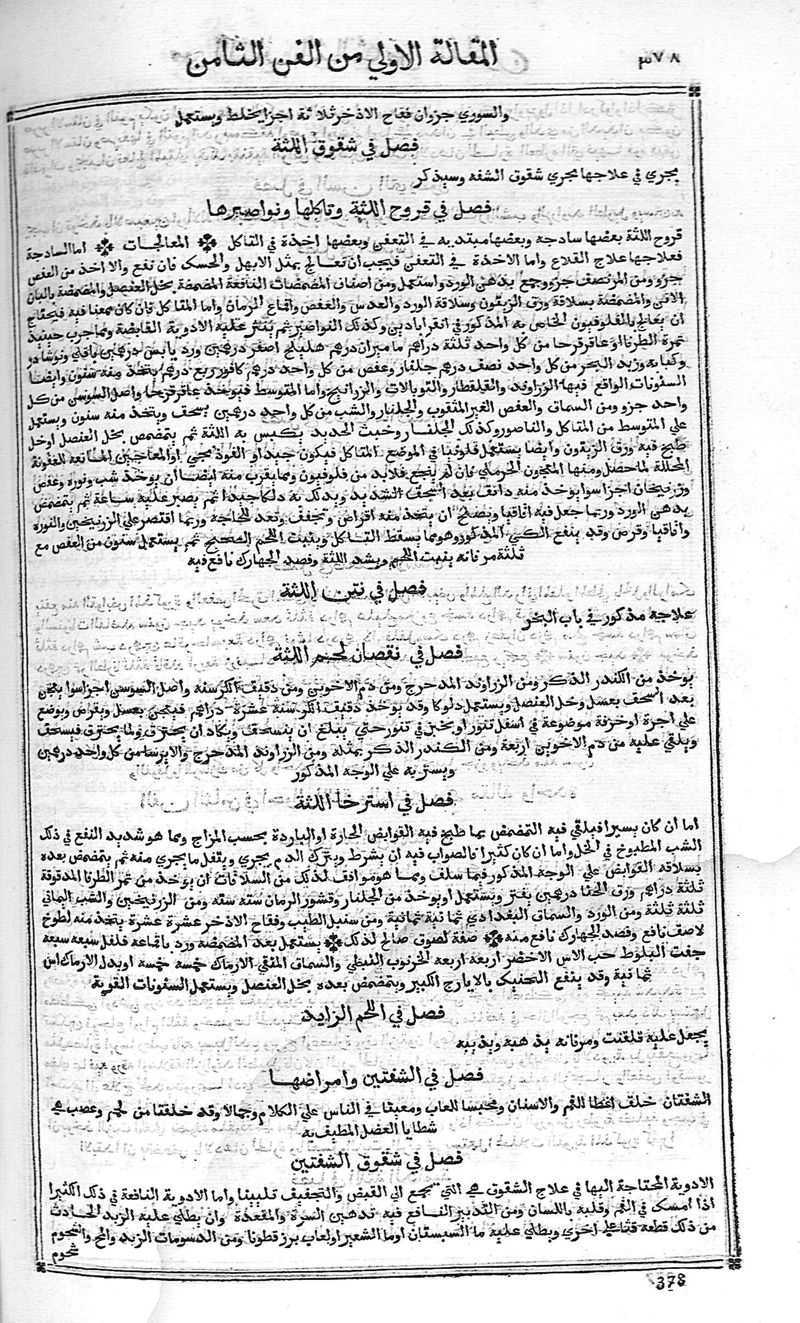 ٣٧٨
المقالة الاولي من الفن الثامن
والسوري جزوان فقاح الاذخر ثلاثة اجزا يخلط ويستعمل
فصل في شقوق اللثة
يجري في علاجها مجري شقوق الشفه وسيذكر
فصل في قروح اللثة وتاكلها ونواصيرها
قروح اللثة بعضها ساذجه وبعضها مبتديه في التعفن وبعضها اخذة في التاكل المعالجات اما الساذجة
فعلاجها علاج القلاع واما الاخذة في التعفن فيجب ان تعالج بمثل الابهل والحسك فان نفع والا اخذ من العفص
جزو ومن المر نصف جزو ويجمع بدهن الورد واستعمل ومن اصناف المضمضات النافعة المضمضة بخل العنصل والمضمضة بالبان
الاتن والمضمضة بسلاقة ورق الزيتون وسلاقة الورد والعدس والعفص واقماع الرمان واما المتاكل فان كان ممعنا فيه فيحتاج
ان يعالج بالفلدفيون الخاص به المذكور في اقراباذين وكذلك النواصير ثم ينثر عليه الادوية القابضة ومما جرب حينيذ
ثمرة الطرفا وعاقرقرحا من كل واحد ثلثة دراهم ماميران درهم هليلج اصفر درهمين ورد يابس درهمين باقلي ونوشادر
وكبابه وزبد البحر من كل واحد نصف درهم جلنار وعفص من كل واحد درهم كافور ربع درهم يتخذ منه سنون وايضا
السنونات الواقع فيها الزراوند والقلقطار والتوبالات والزرانيخ واما المتوسط فيوخذ عاقرقرحا واصل السوسن من كل
واحد جزو ومن السماق والعفص الغير المثقوب والجلنار والشب من كل واحد درهمين يسحق ويتخذ منه سنون ويستعمل
علي المتوسط من المتاكل والناصور وكذلك الجلنار وخبث الحديد يكبس به اللثة ثم يتمضمض بخل العنصل اوخل
طبخ فيه ورق الزيتون وايضا يستعمل فلدفيونا في الموضع المتاكل فيكون جيدا او الفوذنجي والمعاجين المانعة للعفونة
المحللة لما حصل ومنها المعجون الحرملي فان لم ينجع فلابد من فلدفيون ومما يقرب منه ايضا ان يوخذ شب ونوره وعفص
وزرنيخان اجزا سوا يوخذ منه دانق بعد السحق الشديد ويدلك به دلكا جيدا ثم يصبر عليه ساعة ثم يتمضمض
بدهن الورد وربما جعل فيه اقاقيا ويصلح ان يتخذ منه اقراض وتجفف وتعد للحاجة وربما اقتصر علي الزرنيخين والنوره
واقاقيا وقرض وقد ينفع الكي المذكور وهو مما يسقط التاكل وينبت اللحم الصحيح ثم يستعمل سنون من العفص مع
ثلثة مرفانه ينبت اللحم ويشد اللثة وفصد الجهارك نافع فيه
فصل في نتن اللثة
علاجه مذكور في باب البخر
فصل في نقصان لحم اللثة
يوخذ من الكندر الذكر ومن الزراوند المدحرج ومن دم الاخوين ومن دقيق الكرسنه واصل السوسن اجزا سوا يعجن
بعد السحق بعسل وخل العنصل ويستعمل دلوكا وقد يوخذ دقيق الكرسنة عشرة دراهم فيعجن بعسل ويقراض ويوضع
علي اجرة او خزفة موضوعة في اسفل تنور او يخبز في تنور حتي يبلغ ان ينسحق ويكاد ان يحترق ولما يحترق فيسحق
ويلقي عليه من دم الاخوين اربعة ومن الكندر الذكر بمثله ومن الزراوند المدحرج والايرسا من كل واحد درهمين
ويستن به علي الوجه المذكور
فصل في استرخا اللثة
اما ان كان يسيرا فيلقي فيه التمضمض بما طبخ فيه القوابض الحارة او الباردة بحسب المزاج ومما هو شديد النفع في ذلك
الشب المطبوخ في الخل واما ان كان كثيرا فالصواب فيه ان يشرط ويترك الدم يجري ويتفل ما يجري منه ثم يتمضمض بعده
بسلاقه القوابض علي الوجه المذكور فيما سلف ومما هو موافق لذلك من السلاقات ان يوخذ من ثمر الطرفا المدقوقة
ثلثة دراهم ورق الحنا درهمين يفتر ويستعمل او يوخذ من الجلنار وقشور الرمان سته سته ومن الزرنيخين والشب اليماني
ثلثة ثلثة ومن الورد والسماق البغدادي ثمانية ثمانية ومن سنبل الطيب وفقاح الاذخر عشرة عشرة يتخذ منه لطوخ
لاصف نافع وفصد الجهارك نافع منه صفة لصوق صالح لذلك يستعمل بعد المضمضة ورد باقماعه فلفل سبعه سبعه
جفت البلوط حب الاس الاخضر اربعة اربعة الخرنوب النبطي والسماق المنقي الارماك خمسة خمسة او بدل الارماك اس
ثمانية وقد ينفع التحنيك بالايارج الكبير ويتمضمض بعده بخل العنصل ويستعمل السنونات القوية
فصل في اللحم الزايد
يجعل عليه قلقنت ومرفانه يذهبه ويذيبه
فصل في الشفتين وامراضها
الشفتان خلقتا غطا للفم والاسنان ومحبسا للعاب ومعينا في الناس علي الكلام وجمالا وقد خلقتا من لحم وعصب هي
شظايا العضل المطيف به
فصل في شقوق الشفتين
الادوية المحتاجة اليها في علاج الشقوق هي التي تجمع الي القبض والتجفيف تليينا واما الادوية النافعة في ذلك الكثيرا
اذا امسك في الفم وقلبه باللسان ومن التدبير النافع فيه تدهين السرة والمقعدة وان يطلي عليه الزبد الحادث
من ذلك قطعة قثا علي اخري ويطلي عليه ما السبستان اوما الشعير او لعاب برزقطونا ومن الدسومات الزبد والمخ والشحوم
شحوم
378